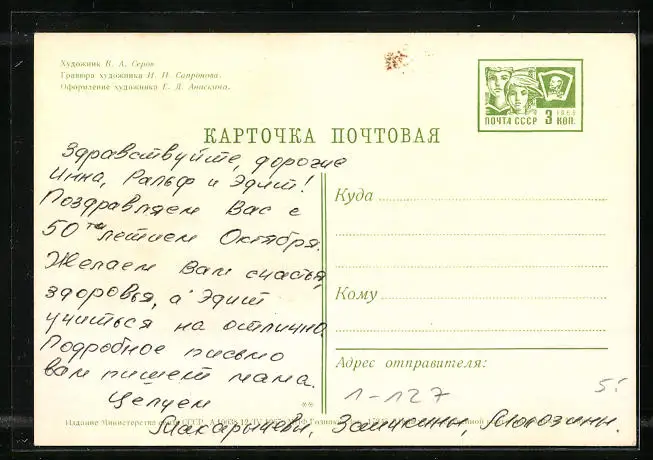 Художник В. А. Серов
Гравюра художника И. П. Сапронова.
Оформление художника Е. Д. Анискина.
ПОЧТА СССР 3 КОП.
КАРТОЧКА ПОЧТОВАЯ
Здравствуйте, дорогие
Инна, Ральф и Эдит!
Поздравляем Вас с
50тилетием Октября.
Желаем Вам счастья,
здоровья, а Эдит
учиться на отлично.
Подробное письмо
вам пишет мама.
Целуем
Макарычевы, Заичкины,
Куда
Кому
Адрес отправителя:
1-127
Издание Министерства связи СССР.